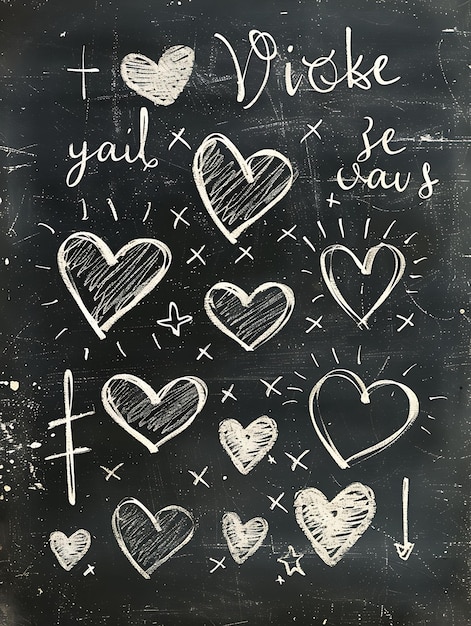 Vioke
yail
se
vavs